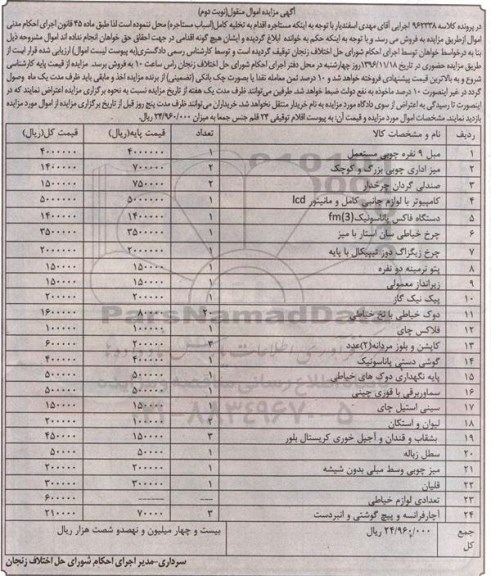 آگهی مزایده اموال منقول(نوبت دوم)
در پرونده کلاسه ۹۶۲۳۳۸ اجرایی آقای مهدی اسفندیار با توجه به اینکه مستاجره اقدام به تخلیه کامل(اسباب مستاجره) محل ننموده است لذا طبق ماده ۴۵ قانون اجرای احکام مدنی
اموال ازطریق مزایده به فروش می رسد. و با توجه به اینکه حکم به خوانده ابلاغ گردیده و ایشان هیچ گونه اقدامی در جهت احقاق حق خواهان انجام نداده اند اموال مشروحه ذیل
بنا به درخواست خواهان توسط اجرای احکام شورای حل اختلاف زنجان توقیف گردیده است و توسط کارشناس رسمی دادگستری(به پیوست لیست اموال) ارزیابی شده قرار است از
طریق مزایده حضوری در تاریخ ۱۳۹۶/۱۱/۱۸ روز چهارشنبه در محل دفتر اجرای احکام شورای حل اختلاف زنجان راس ساعت ۱۰ به فروش برسد. مزایده از قیمت پایه کارشناسی
شروع و به بالاترین قیمت پیشنهادی فروخته خواهد شد و ۱۰ درصد ثمن معامله نقدا یا بصورت چک بانکی (تضمینی) از برنده مزایده اخذ و مابقی باید ظرف مدت یک ماه وصول
گردد در غیر اینصورت ۱۰ درصد ماخوذه به نفع دولت ضبط خواهد شد. طرفین می توانند ظرف مدت یک هفته از تاریخ مزایده نسبت به نحوه برگزاری مزایده اعتراض نمایند که در
اینصورت تا رسیدگی به اعتراض از سوی دادگاه مورد مزایده به نام خریدار منتقل نخواهد شد. خریداران می توانند ظرف مدت پنج روز قبل از تاریخ برگزاری مزایده از اموال مورد مزایده
بازدید نمایند. مشخصات اموال مورد مزایده و قیمت آن: به پیوست اقلام توقیفی ۲۴ قلم جنس جمعا به میزان ۲۴/۹۶۰/۰۰۰ ریال.
ردیف نام و مشخصات کالا تعداد قیمت پایه(ریال) قیمت کل(ریال)
۱ مبل ۹ نفره چوبی مستعمل ۱ ۴۰۰۰۰۰۰ ۴۰۰۰۰۰۰
۲ میز اداری چوبی بزرگ و کوچک ۲ ۷۰۰۰۰۰ ۱۴۰۰۰۰۰
۳ صندلی گردان چرخدار ۲ ۷۵۰۰۰۰ ۱۵۰۰۰۰۰
۴ کامپیوتر با لوازم جانبی کامل و مانیتور lcd ۱ ۵۰۰۰۰۰۰ ۵۰۰۰۰۰۰
۵ دستگاه فاکس پاناسونیک fm(3) ۱ ۱۴۰۰۰۰۰ ۱۴۰۰۰۰۰
۶ چرخ خیاطی سان استار با میز ۱ ۳۵۰۰۰۰۰ ۳۵۰۰۰۰۰
۷ چرخ زیگزاگ دوز تیپیکال با پایه ۱ ۲۰۰۰۰۰۰ ۲۰۰۰۰۰۰
۸ پتو نرمینه دو نفره ۱ ۱۵۰۰۰۰ ۱۵۰۰۰۰
۹ زیرانداز معمولی ۱ ۱۵۰۰۰۰ ۱۵۰۰۰۰
۱۰ پیک نیک گاز ۱ ۲۰۰۰۰۰ ۲۰۰۰۰۰
۱۱ دوک خیاطی با نخ خیاطی ۱۶۰۰۰۰۰
۱۲ فلاکس چای ۱ ۱۰۰۰۰۰ ۱۰۰۰۰۰
۱۳ کاپشن و بلوز مردانه(۲)عدد ۲۰۰۰۰۰ ۶۰۰۰۰۰
۱۴ گوشی دستی پاناسونیک ۱ ۴۰۰۰۰۰ ۴۰۰۰۰۰
۱۵ پایه نگهداری دوک های خیاطی ۱ ۵۰۰۰۰۰ ۵۰۰۰۰۰
۱۶ سماوربرقی با قوری چینی ۱ ۵۰۰۰۰۰ ۵۰۰۰۰۰
۱۷ سینی استیل چای ۱ ۱۵۰۰۰۰ ۱۵۰۰۰۰
۱۸ لیوان و استکان ۲ ۱۰۰۰۰۰ ۲۰۰۰۰۰
۱۹ بشقاب و قندان و آجیل خوری کریستال بلور ۳ ۱۵۰۰۰۰ ۴۵۰۰۰۰
۲۰ سطل زباله ۱ ۵۰۰۰۰ ۵۰۰۰۰
۲۱ میز چوبی وسط مبلی بدون شیشه ۱ ۲۰۰۰۰۰ ۲۰۰۰۰۰
۲۲ قلیان ۱ ۳۰۰۰۰۰ ۳۰۰۰۰۰
۲۳ تعدادی لوازم خیاطی --- ------ ۶۰۰۰۰۰
۲۴ آچارفرانسه و پیچ گوشتی و انبردست ۳ ۷۰۰۰۰ ۲۱۰۰۰۰
جمع کل ۲۴/۹۶۰/۰۰۰ ریال بیست و چهار میلیون و نهصدو شصت هزار ریال
سرداری-مدیر اجرای احکام شورای حل اختلاف زنجان
ParsNamadData